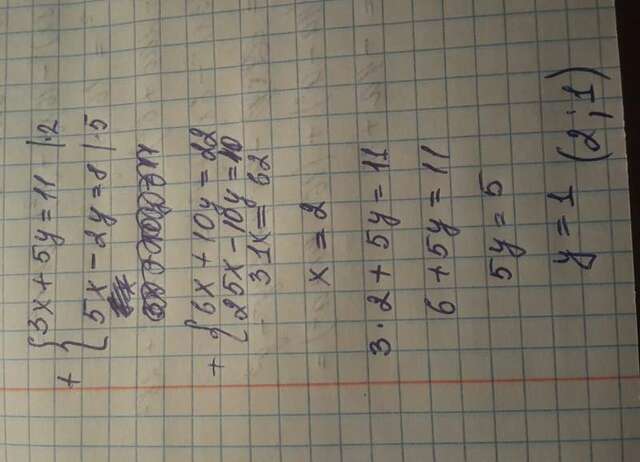 + { 3x + 5y = 11 | · 2
5x − 2y = 8 | · 5
+ { 6x + 10y = 22
25x − 10y = 40
31x = 62
x = 2
3 · 2 + 5y = 11
6 + 5y = 11
5y = 5
y = 1 (2; 1)